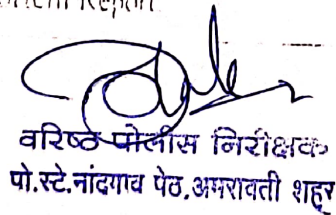 वरिष्ठ पोलीस निरीक्षक
पो.स्टे.नांदगाव पेठ.अमरावती शहर